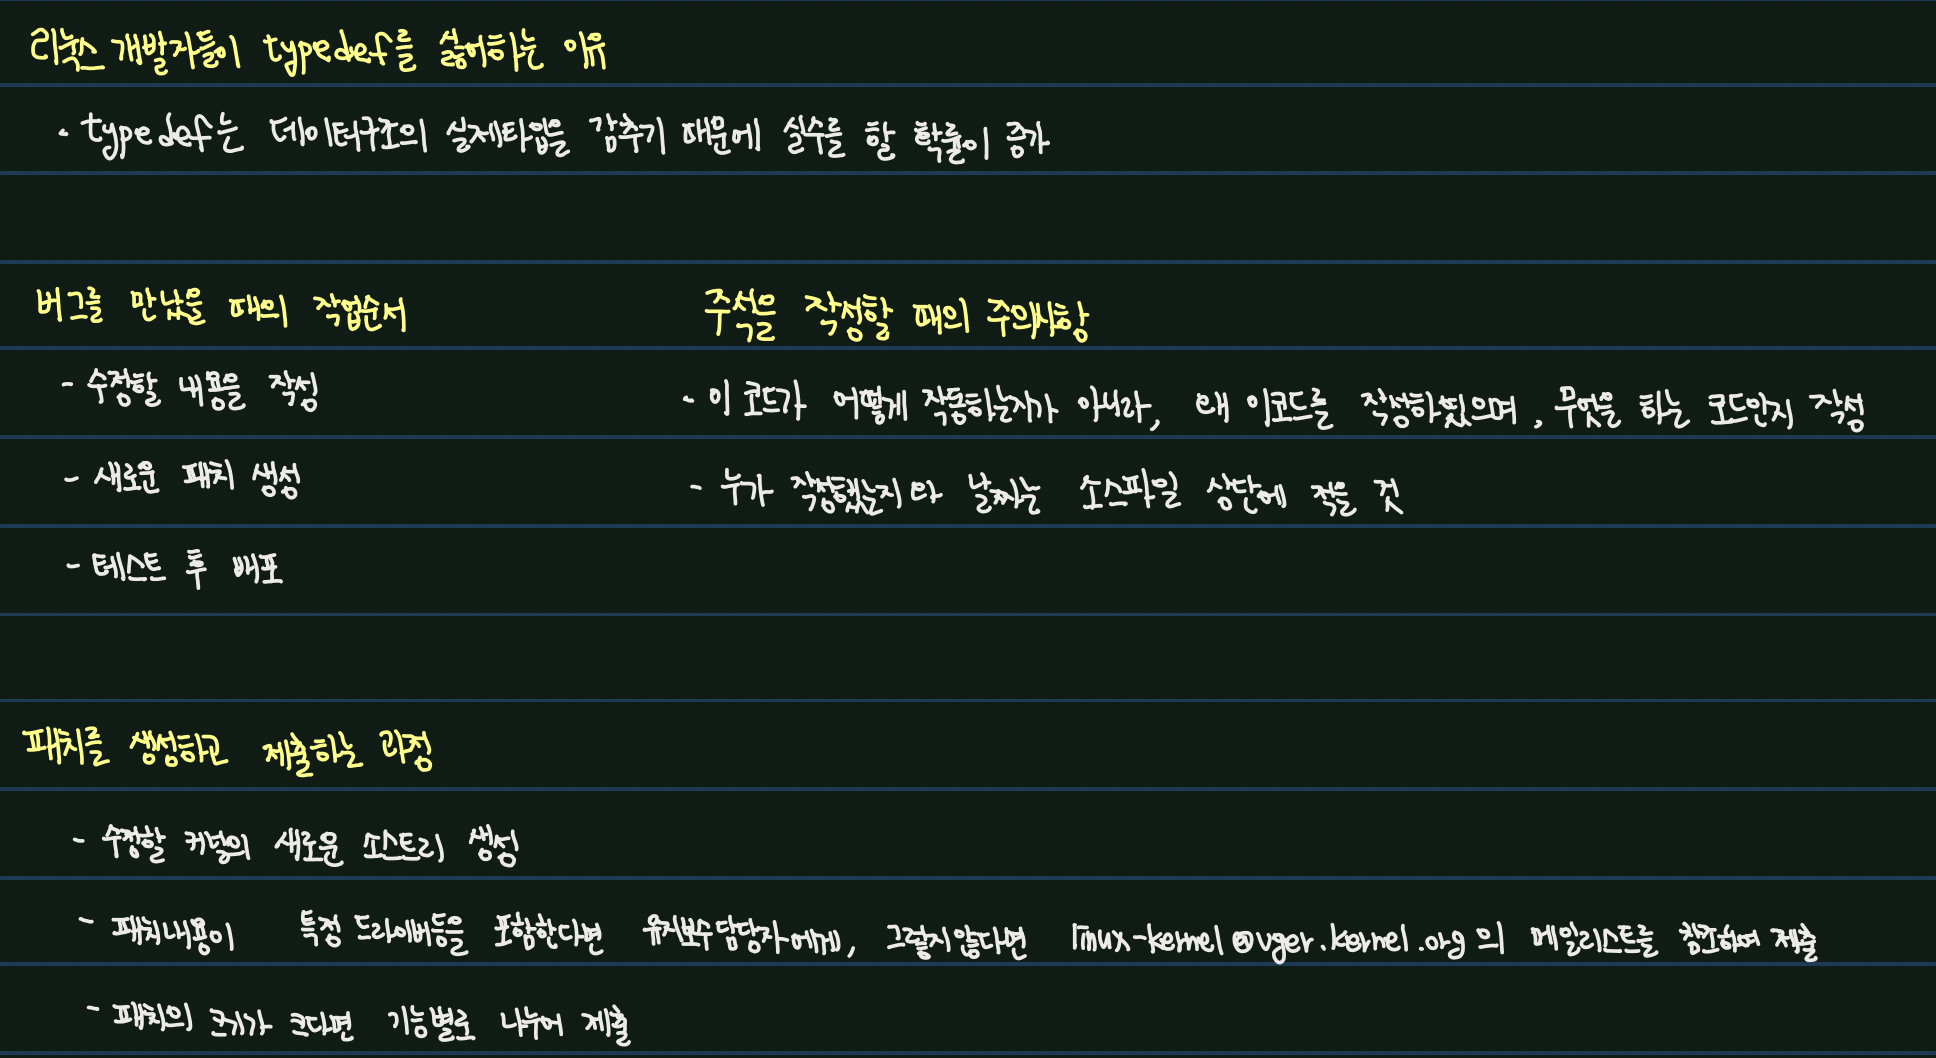 리눅스 개발자들이 typedef를 싫어하는 이유
- typedef는 데이터구조의 실제타입을 감추기 때문에 실수를 할 확률이 증가
버그를 만났을 때의 작업순서
- 수정할 내용을 작성
- 새로운 패치 생성
- 테스트 후 배포
주석을 작성할 때의 주의사항
- 이 코드가 어떻게 작동하는지가 아니라, 왜 이코드를 작성하였으며, 무엇을 하는 코드인지 작성
- 누가 작성했는지와 날짜는 소스파일 상단에 적을 것
패치를 생성하고 제출하는 과정
- 수정할 커널의 새로운 소스트리 생성
- 패치내용이 특정 드라이버등을 포함한다면 유지보수 담당자에게, 그렇지않다면 linux-kernel@vger.kernel.org의 메일리스트를 참조하여 제출
- 패치의 크기가 크다면 기능별로 나누어 제출